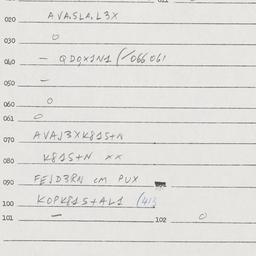 020 AVA.SLA.L3X
030 O
040 — QDQX1N1 (/066 061
050 —
060 O
061 O
070 AVAJ3XK81S+N
080 K81S+N XX
090 FEJD3RN CM PUX
100 KOPK81S+AL1 (413
101 — 102 O